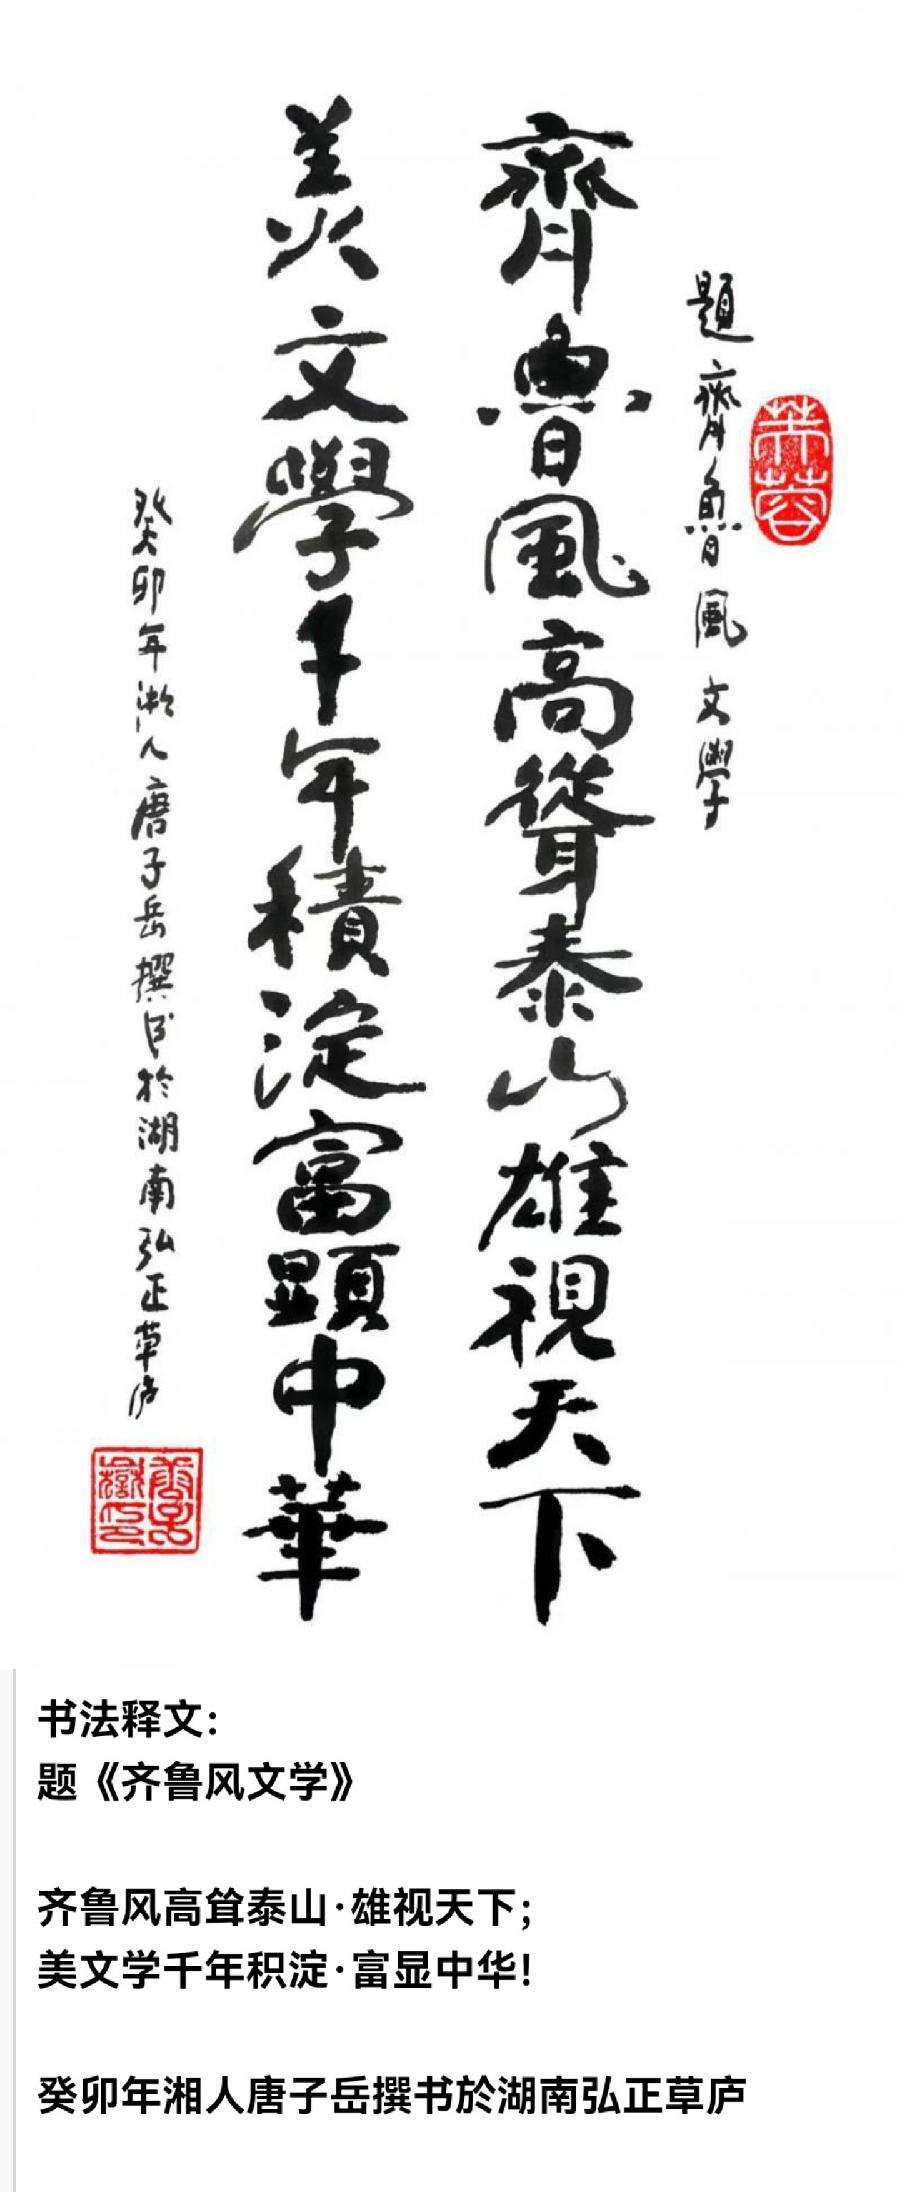 題齊魯風文學
芙蓉
齊魯風高聳泰山雄視天下
美文學千年積淀富顯中華
癸卯年湘人唐子岳撰书於湖南弘正草庐
书法释文：
题《齐鲁风文学》
齐鲁风高耸泰山·雄视天下；
美文学千年积淀·富显中华！
癸卯年湘人唐子岳撰书於湖南弘正草庐